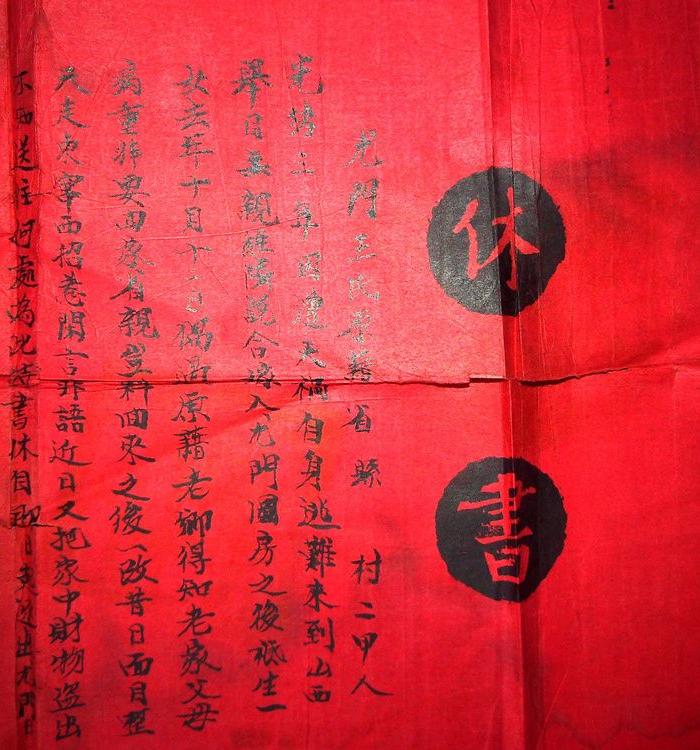 休書
尤門王氏原籍省縣 村二甲人
光緒三年因遭大禍自身逃難來到山西
舉目無親經隣說合嫁入尤門圓房之後祗生一
女去年十月十一日偶遇原籍老鄉得知老家父母
病重非要回家省親豈料回來之後一改昔日面目整
天走東竄西招惹閑言非語近日又把家中財物盗出
不知送往何處為此特書休自即日 出尤門